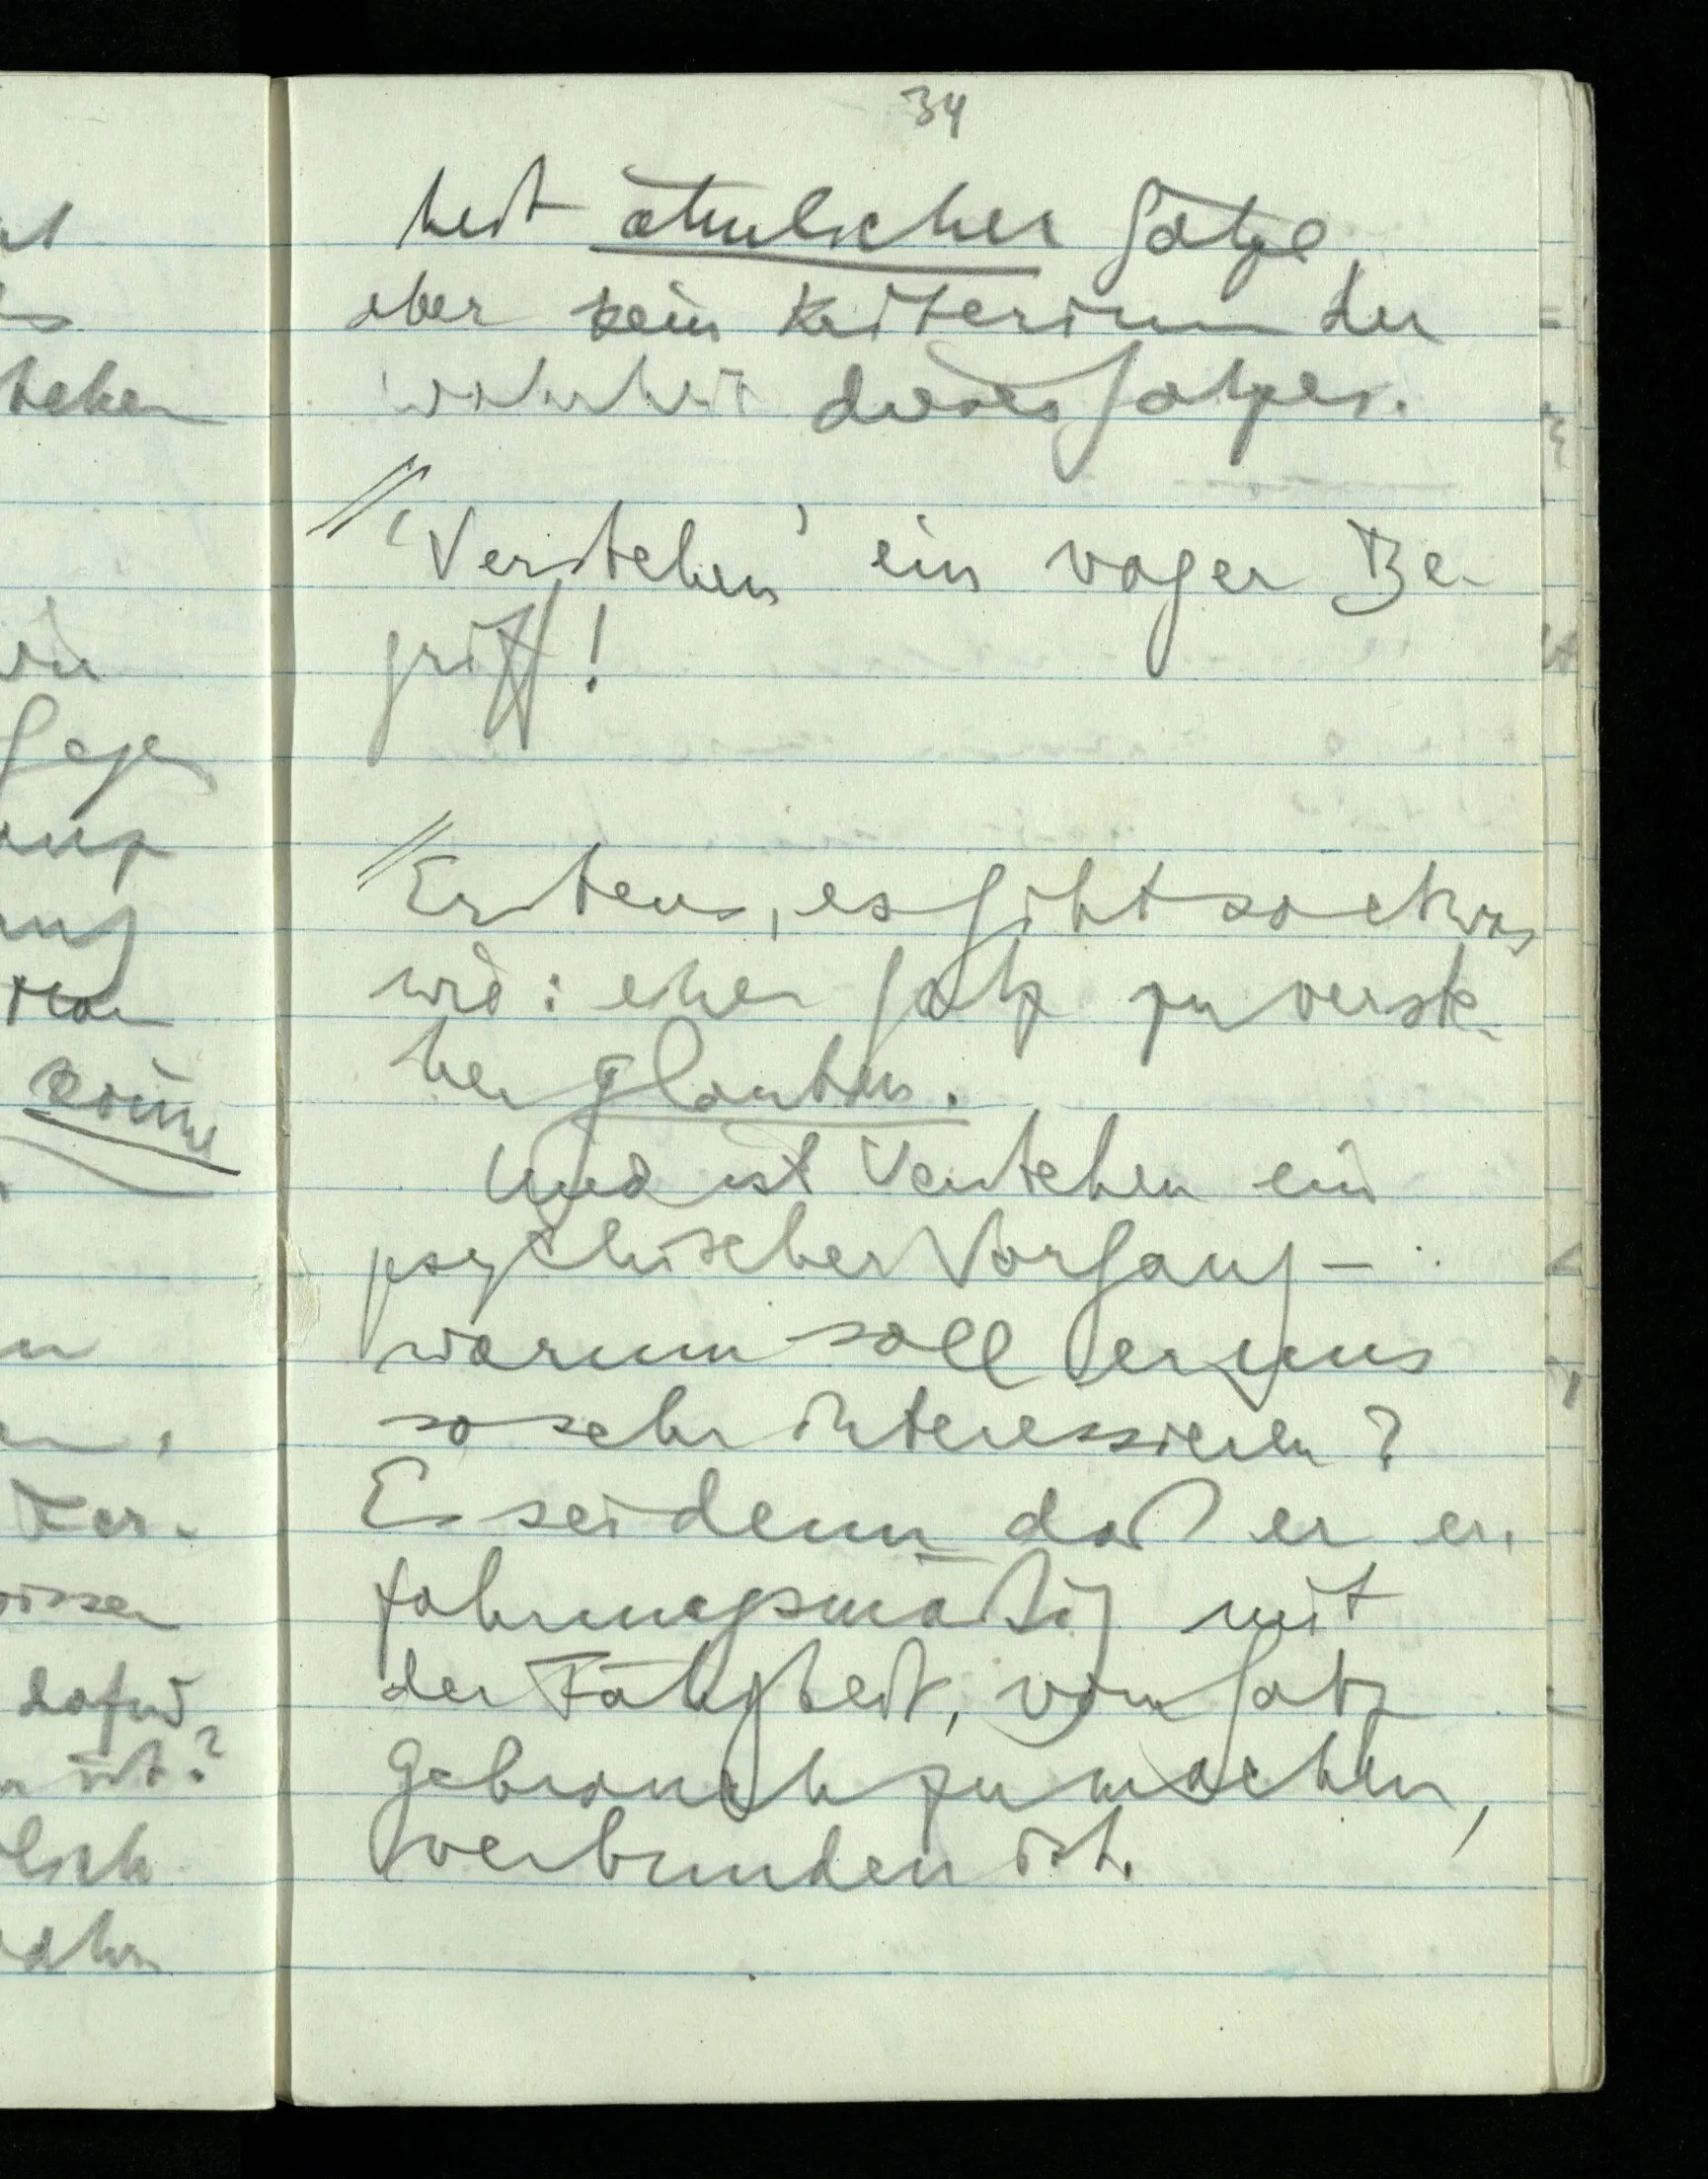 34
heit ähnlicher Sätze
aber kein Kriterium der
Wahrheit dieses Satzes.
// ‘Verstehen’ ein vager Be-
griff!
// Erstens, es gibt so etwas
wie: einen Satz zu verste-
hen glauben.
Und ist Verstehen ein
psychischer Vorgang –
warum soll er uns
so sehr interessieren?
Es sei denn daß er er-
fahrungsmäßig mit
der Fähigkeit, vom Satz
Gebrauch zu machen,
verbunden ist.